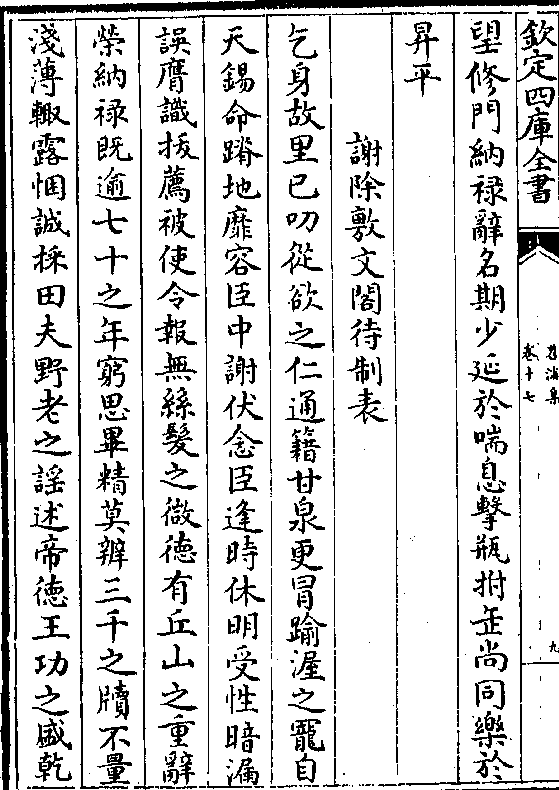 欽定四庫全書
卷十七
九
望修門納禄辭名期少延於喘息擊瓶拊缶尚同樂於
昇平
謝除敷文閣待制表
乞身故里已叨從欲之仁通籍甘泉更冒踰渥之寵自
天錫命蹐地靡容臣中謝伏念臣逢時休明受性暗漏
誤膺識拔薦被使令報無絲髮之微德有丘山之重辭
榮納禄既逾七十之年窮思畢精莫辨三千之牘不量
淺薄輙露悃誠採田夫野老之謡述帝德王功之盛乾